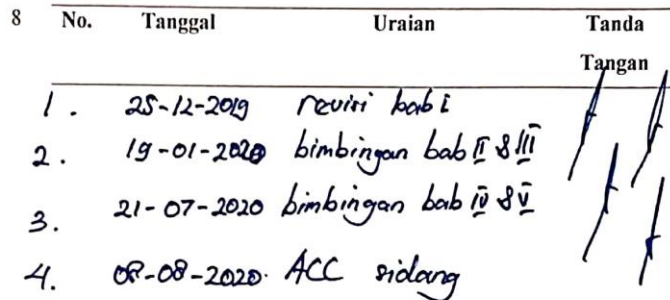 8 No. Tanggal Uraian Tanda Tangan
1. 25-12-2019 revisi bab I
2. 19-01-2020 bimbingan bab II & III
3. 21-07-2020 bimbingan bab IV & V
4. 08-08-2020. ACC sidang